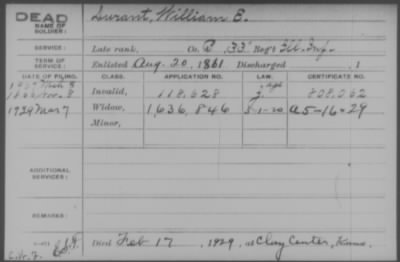 DEAD
NAME OF SOLDIER: Durant, William E.
SERVICE: Late rank, Co. B, 33" Reg't Ill. Inf.
TERM OF SERVICE: Enlisted Aug. 20, 1861 Discharged , 1
DATE OF FILING. CLASS. APPLICATION NO. LAW. CERTIFICATE NO.
Invalid, 118,628
1929 Mar 7 Widow, 1,636,846 5-1-20 A5-16-29
Minor,
ADDITIONAL SERVICES:
REMARKS:
Died Feb 17, 1929, at Clay Center, Kans.